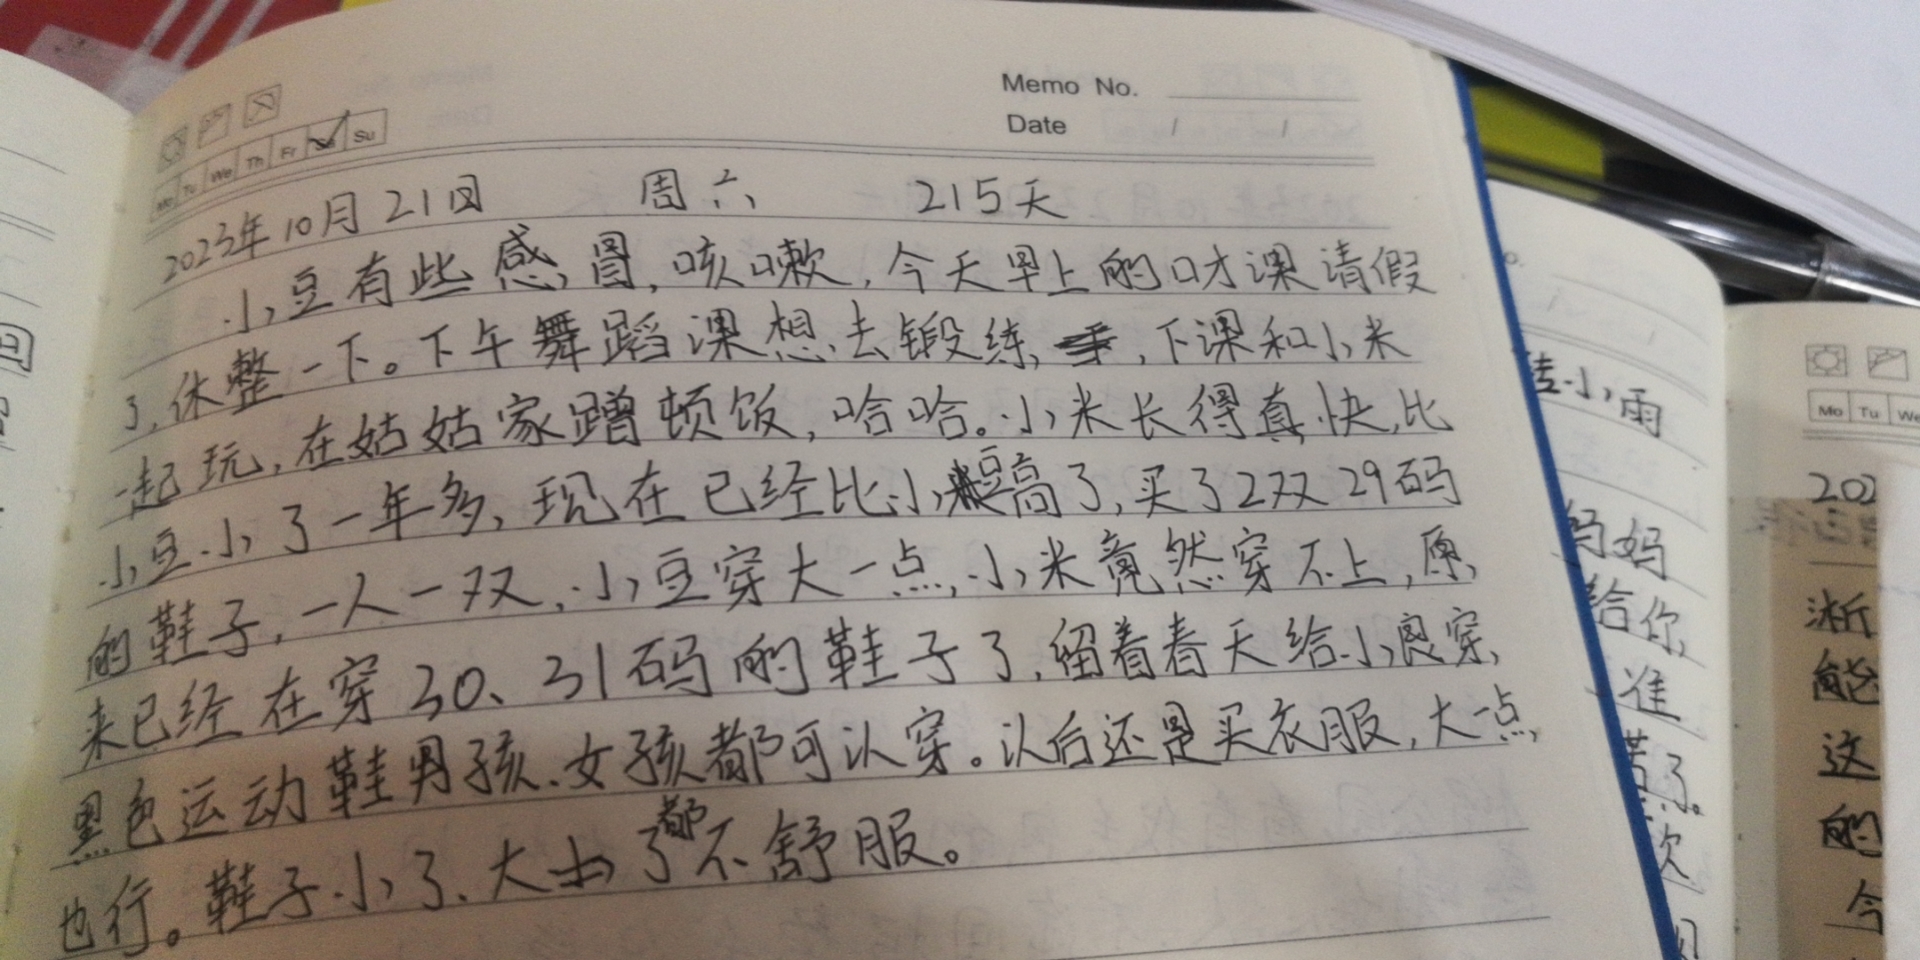 Memo No.
Date / /
Mo Tu We Th Fr Sa Su
2023年10月21日 周六 215天
小豆有些感冒,咳嗽,今天早上的口才课请假
了,休整一下。下午舞蹈课想去锻练,下课和小米
一起玩,在姑姑家蹭顿饭,哈哈。小米长得真快,比
小豆小了一年多,现在已经比小豆高了,买了2双29码
的鞋子,一人一双,小豆穿大一点,小米竟然穿不上,原
来已经在穿30、31码的鞋子了,留着春天给小良穿,
黑色运动鞋男孩、女孩都可以穿。以后还是买衣服,大一点
也行。鞋子小了、大了都不舒服。
小雨
妈妈
给你
准
苦了。
次
Mo Tu We
202
浙
能
这
的
今